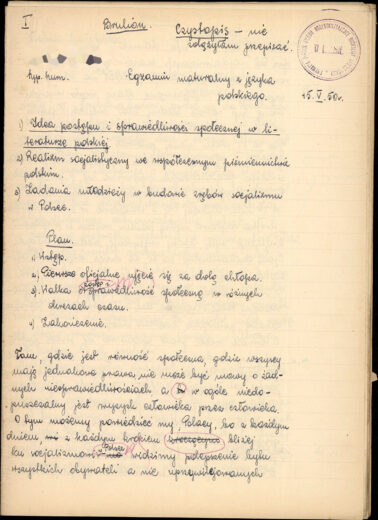 I
Brulion. Czystopis – nie
zdążyłam przepisać.
typ. hum. Egzamin maturalny z języka
polskiego. 15. V. 50r.
1) Idea postępu i sprawiedliwości społecznej w li-
teraturze polskiej
2) Realizm socjalistyczny we współczesnym piśmiennictwie
polskim.
3) Zadania młodzieży w budowie zrębów socjalizmu
w Polsce.
Plan.
1) Wstęp.
2) Pierwsze oficjalne ujęcie się za dolą chłopa.
3) Walka o sprawiedliwość społeczną w różnych
okresach czasu.
4) Zakończenie.
Tam, gdzie jest równość społeczna, gdzie wszyscy
mają jednakowe prawa, nie może być mowy o żad-
nych niesprawiedliwościach a w ogóle niedo-
puszczalny jest wyzysk człowieka przez człowieka.
O tym możemy powiedzieć my, Polacy, bo z każdym
dniem, z każdym krokiem bliżej
ku socjalizmowi w Polsce widzimy polepszenie bytu
wszystkich obywateli a nie uprzywilejowanych